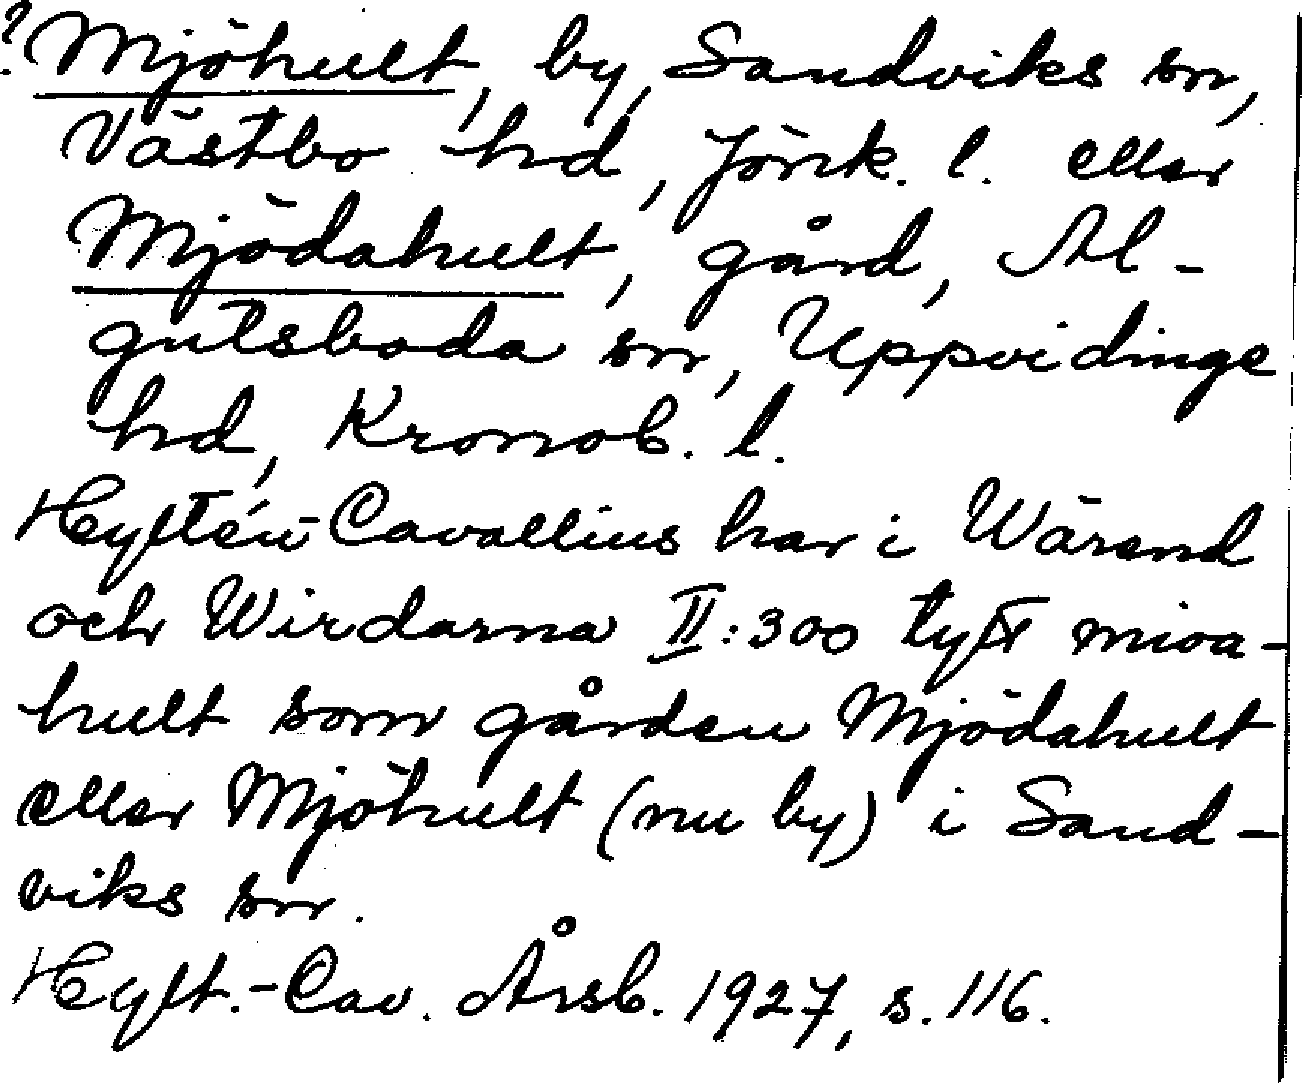 ? Mjöhult, by, Sandviks sn,
Västbo hd, Jönk. l. eller
Mjödahult, gård, Al-
gutsboda sn, Uppvidinge
hd, Kronob. l.
Hyltén-Cavallius har i Wärend
och Wirdarna II:300 tytt mioa-
hult som gården Mjödahult
eller Mjöhult (nu by) i Sand-
viks sn.
Hylt.-Cav. Årsb. 1927, s. 116.